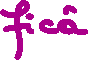 ficâ